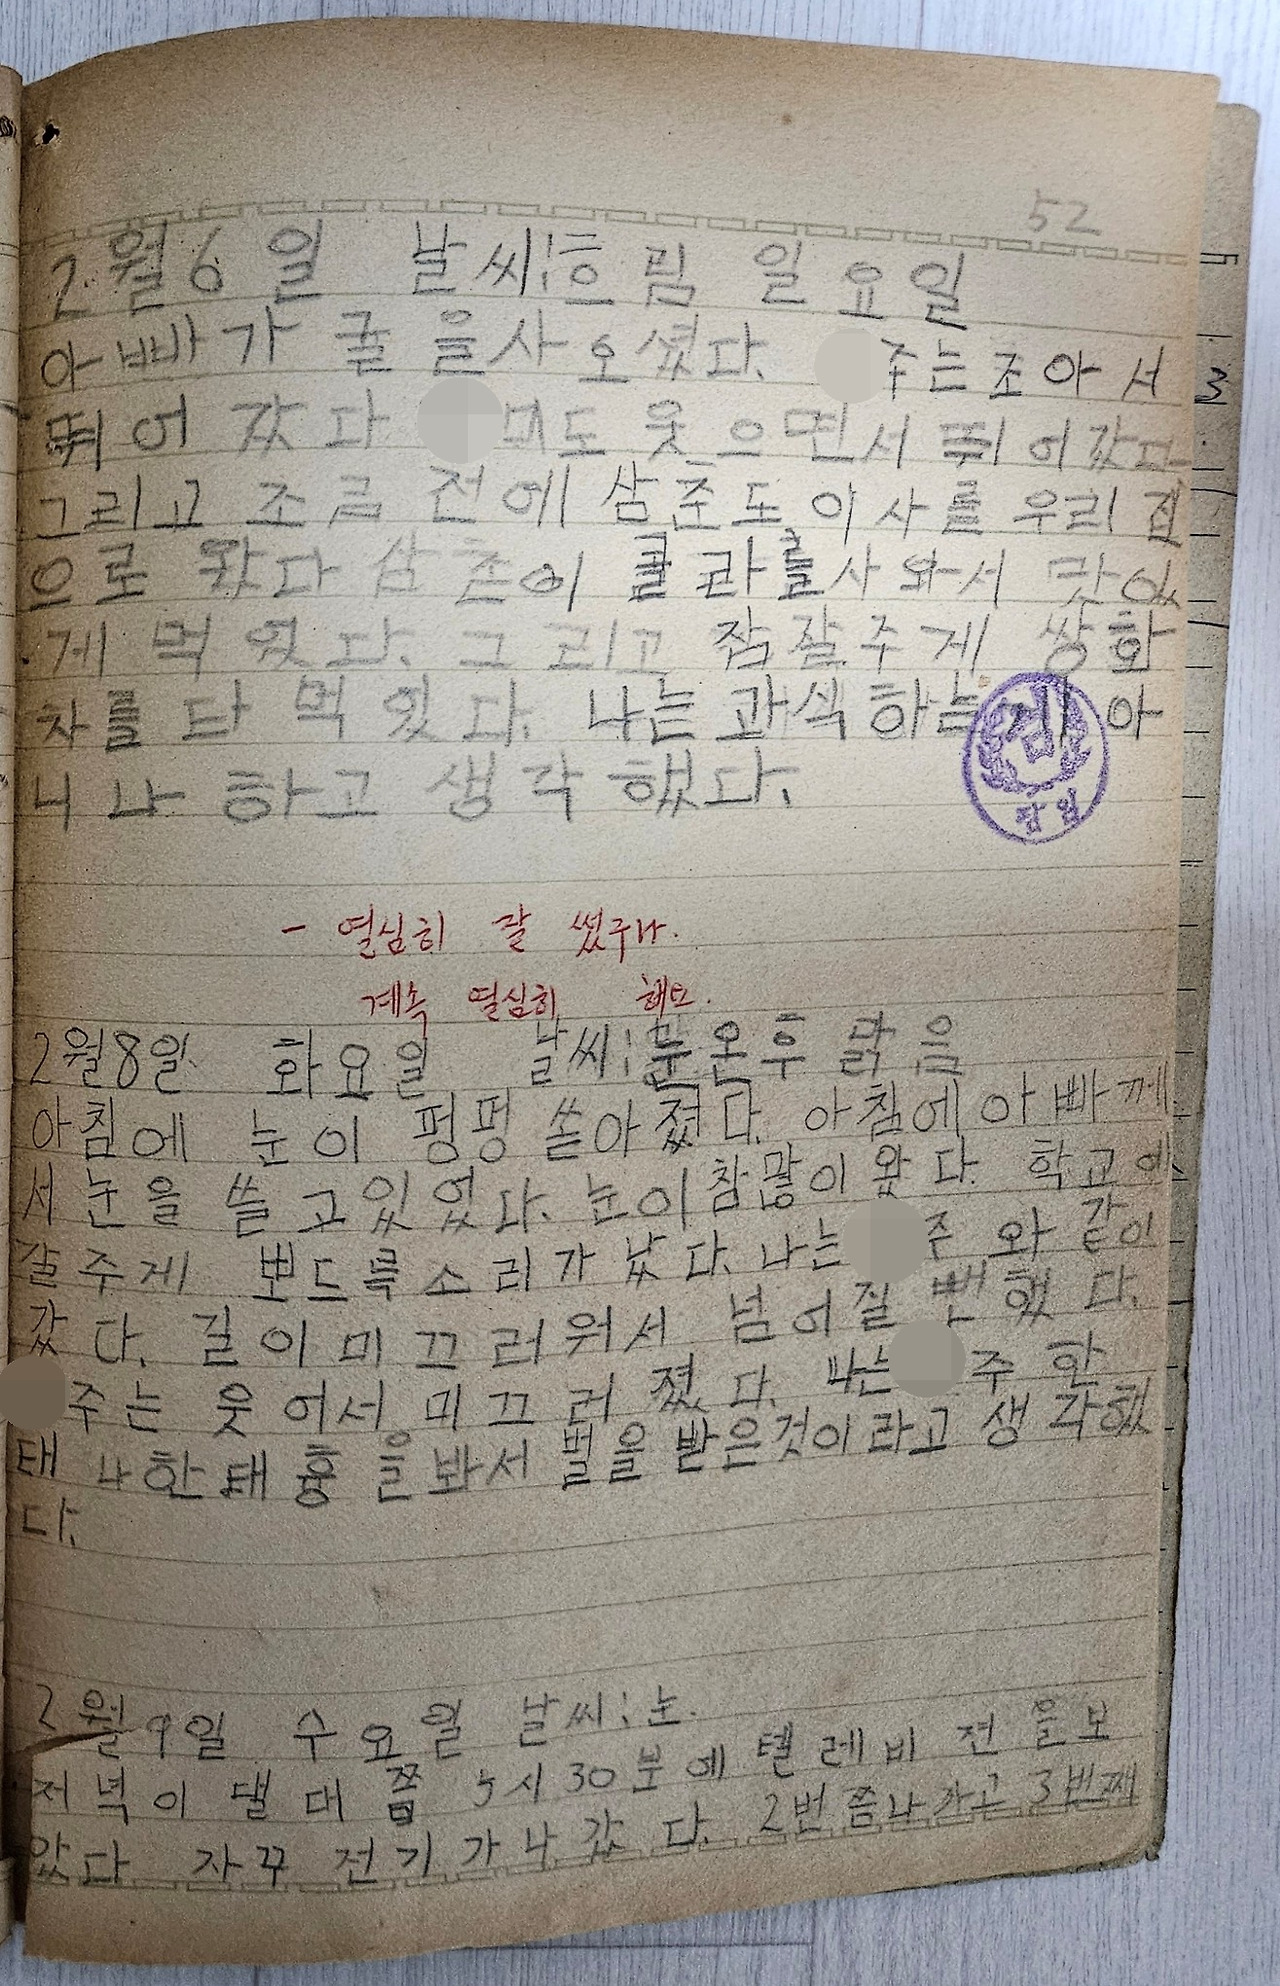 52
2월6일 날씨:흐림 일요일
아빠가 귤을사오셨다. 주는조아서
뛰어갔다 도 웃으면서 뛰어갔다
그리고 조금 전에 삼춘도 이사를 우리 집
으로 왔다 삼촌이 콜라를사와서 맛있
게 먹었다. 그리고 잠잘주게 쌍화
차를 다 먹었다. 나는 과식하는게 아
니냐 하고 생각했다.
검
담임
- 열심히 잘 썼구나.
계속 열심히 해요.
2월8일 화요일 날씨:눈온후 맑음
아침에 눈이 펑펑 쏟아졌다. 아침에 아빠께
서 눈을 쓸고있었다. 눈이참많이왔다. 학교에
갈주게 뽀드륵소리가 났다. 나는 주와 같이
갔다. 길이미끄러워서 넘어질 뻔했다.
주는 웃어서 미끄러졌다. 나는 주한
태 나한태 흉을봐서 벌을 받은것이라고 생각했
다.
2월9일 수요일 날씨:눈.
저녁이 댈대쯤 5시30분에 텔레비전을보
았다 자꾸 전기가나갔다. 2번쯤나가고 3번째